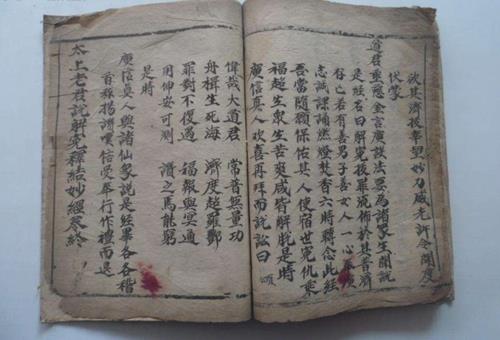 彼其濟拔幸望妙力威光許令開度
伏蒙
道君垂慈金言廣談法要為諸衆生開說
是經名曰解冤拔罪流佈於世普濟
存亡若有善男子善女人一心
志誠課誦燃燈焚香六時轉念此經
吾當隨願保佑其人使宿世冤仇乘
福超生衆生苦爽咸皆解脫是時
廣信真人欢喜再拜而說訟曰 頌
偉哉大道君 常普無量功
舟楫生死海 濟度超羅酆
罪對不復過 福報與冥通
用仰安可測 讚之焉能窮
是時
廣信真人與諸仙衆說是經畢各各稽
首稱揚讚嘆信受奉行作禮而退
太上老君說解冤釋結妙經卷終